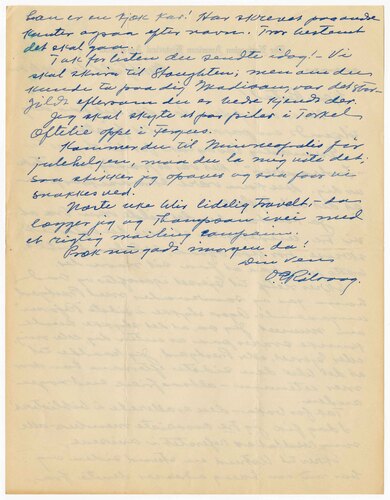 han er en kjæk kar! Har skrevet
kanter ogsaa efter navn. Tror bestemt
det skal gaa.
Tak for listen du sendte idag! - Vi
skal skrive til Stoughton; men om du
kunde ta paa dig Madison, var det stor-
gildt eftersom du er bedre kjendt der.
Jeg skal skyte et par piler i Torkel
Oftelie oppe i Fergus.
Kommer du til Minneapolis før
julehelgen, maa du la mig vite det;
saa stikker jeg opover og saa faar vi
snakkes ved.
Næste uke blir lidelig travelt, - da
lægger jeg og Thompson ivei med
et rigtig mailing campain.
Præk nu godt imorgen da!
Din ven
O E Rölvaag